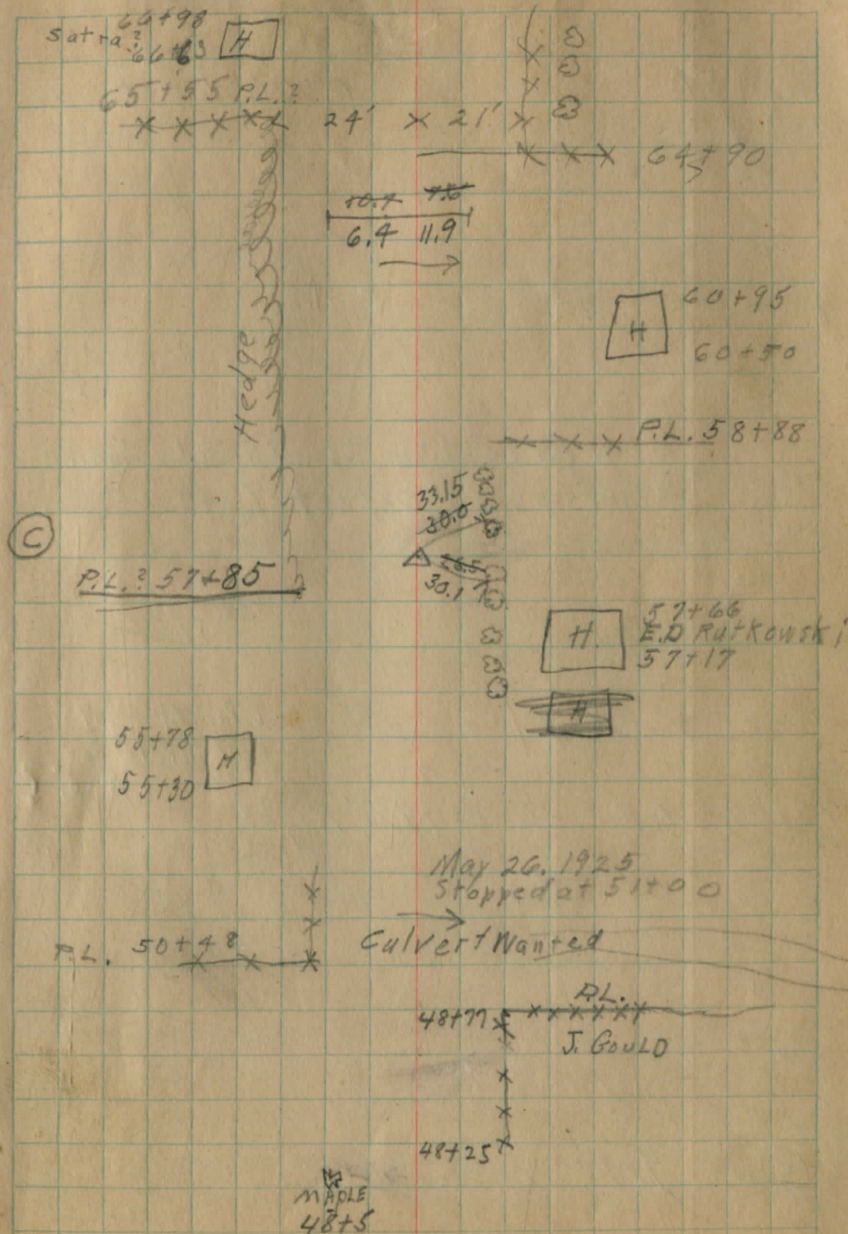 66+98
Satra?
66+63
H
65+55 P.L.?
24' X 21'
64+90
10.4 7.6
6.4 11.9
Hedge
60+95
H
60+50
P.L. 58+88
33.15
30.0
C
26.5
30.1
P.L.? 57+85
57+66
H.
E.D Rutkowski
57+17
H
55+78
H
55+30
May 26, 1925
Stopped at 51+00
Culvert Wanted
P.L. 50+48
P.L.
48+77
J. GOULD
48+25
MAPLE
48+5